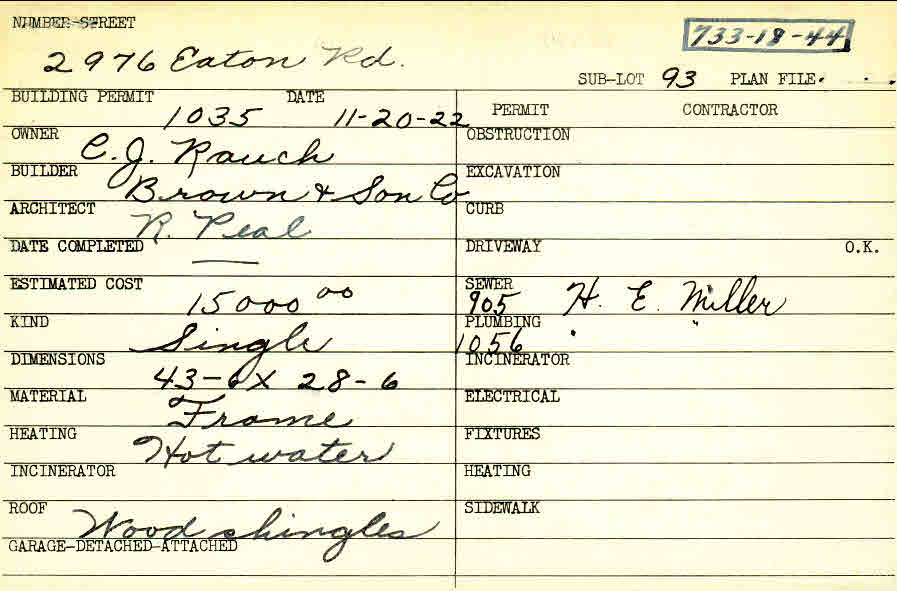 NUMBER-STREET
733-18-44
2976 Eaton Rd.
SUB-LOT 93 PLAN FILE.
BUILDING PERMIT DATE
1035 11-20-22
PERMIT CONTRACTOR
OWNER
C. J. Rauch
OBSTRUCTION
BUILDER
Brown & Son Co
EXCAVATION
ARCHITECT
R. Peal
CURB
DATE COMPLETED
—
DRIVEWAY O.K.
ESTIMATED COST
15000 00
SEWER
905 H. E. Miller
KIND
Single
PLUMBING
1056 " "
DIMENSIONS
43-6 X 28-6
INCINERATOR
MATERIAL
Frame
ELECTRICAL
HEATING
Hot water
FIXTURES
INCINERATOR
HEATING
ROOF
Wood shingles
SIDEWALK
GARAGE-DETACHED-ATTACHED